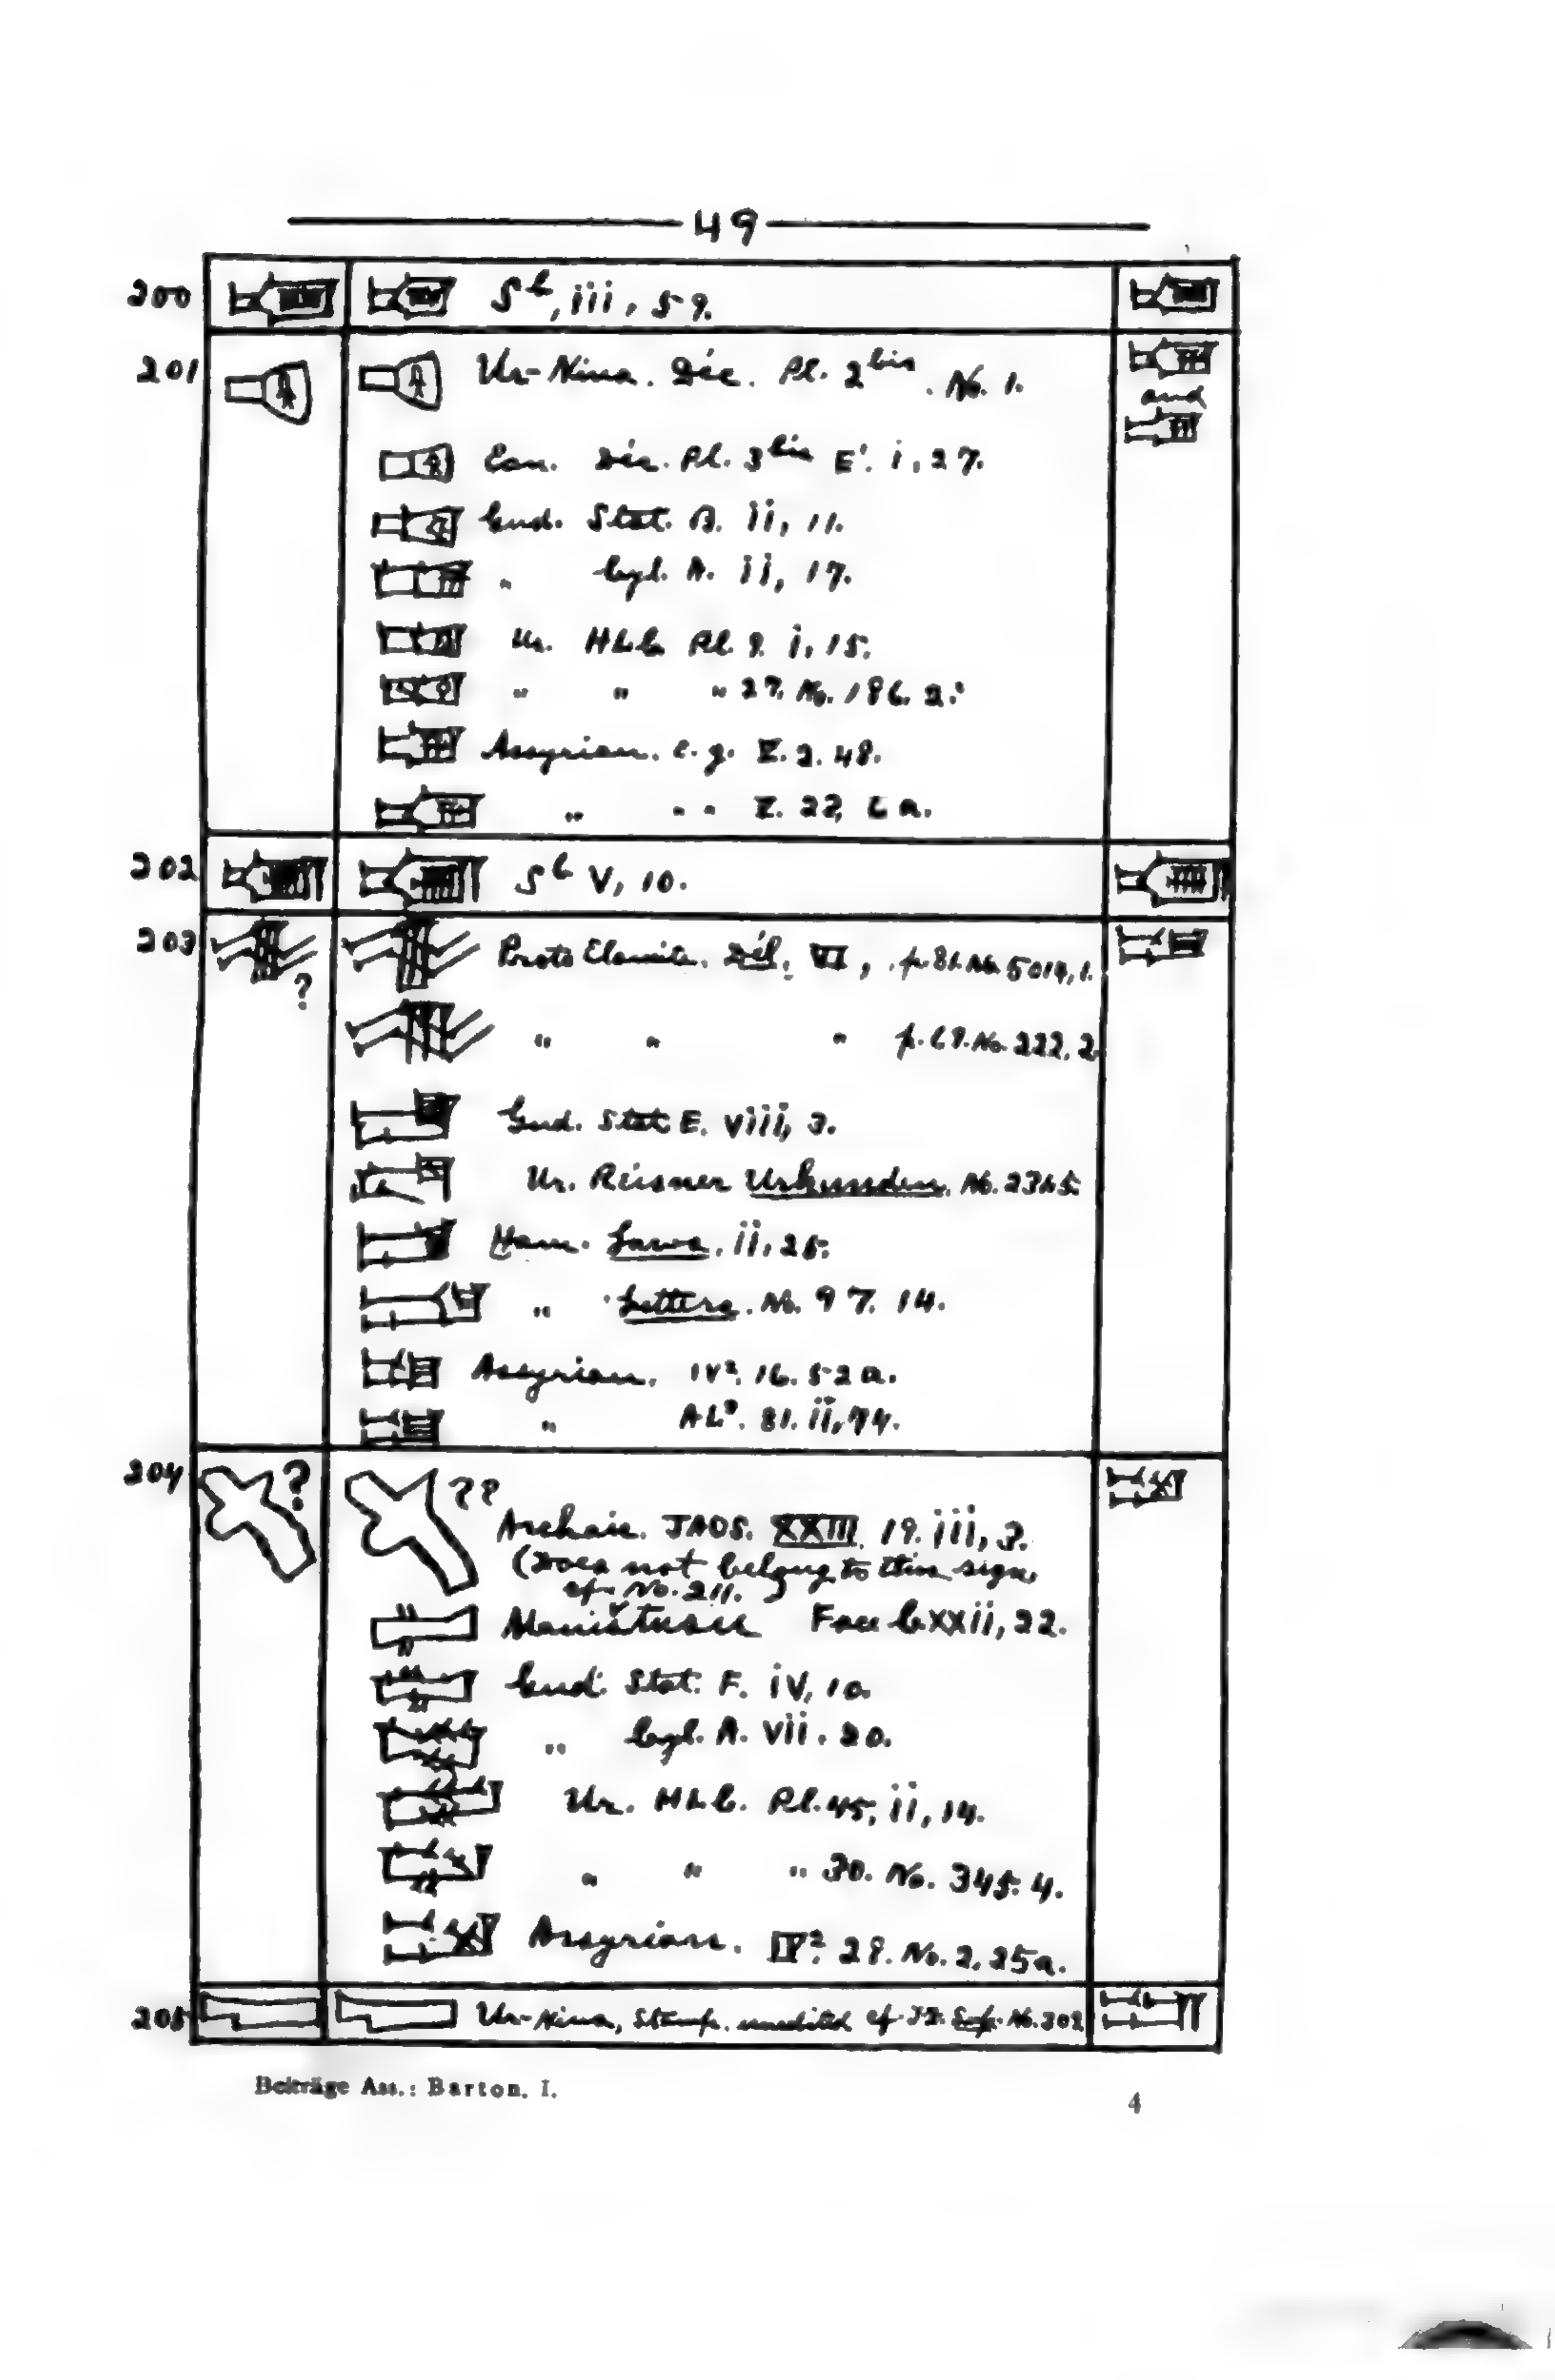 49
200 Sb, iii, 59.
201 Ur-Nina. Déc. Pl. 2bis. No. 1.
and
Ean. Déc. Pl. 3bis E'. i, 27.
Gud. Stat. B. ii, 11.
" Cyl. A. ii, 17.
Ur. HLC. Pl. 9. i, 15.
" " " 27. No. 186. 2.
Assyrian. e.g. I. 2. 48.
" " " I. 22, 6a.
202 Sb V, 10.
203 ? Proto Elamite. Dél. VI, p. 81. No. 5019, 1.
" " " p. 69. No. 222, 2
Gud. Stat E. viii, 3.
Ur. Reisner Urkunden. No. 234.5.
Ham. Laws. ii, 25.
" Letters. No. 97. 14.
Assyrian. IV². 16. 52a.
" AL³. 81. ii, 74.
204 ? ??
Archaic. JAOS. XXIII. 19. iii, 3.
(Does not belong to this sign
cf. No. 211.)
Maništusu Face C. xxii, 22.
Gud. Stat. F. iV, 10.
" Cyl. A. vii. 20.
Ur. HLC. Pl. 45, ii, 14.
" " " 30. No. 345. 4.
Assyrian. IV². 28. No. 2, 25a.
205 Ur-Nina, Stamp. unedited cf No. 302
Beiträge Ass.: Barton. I.
4